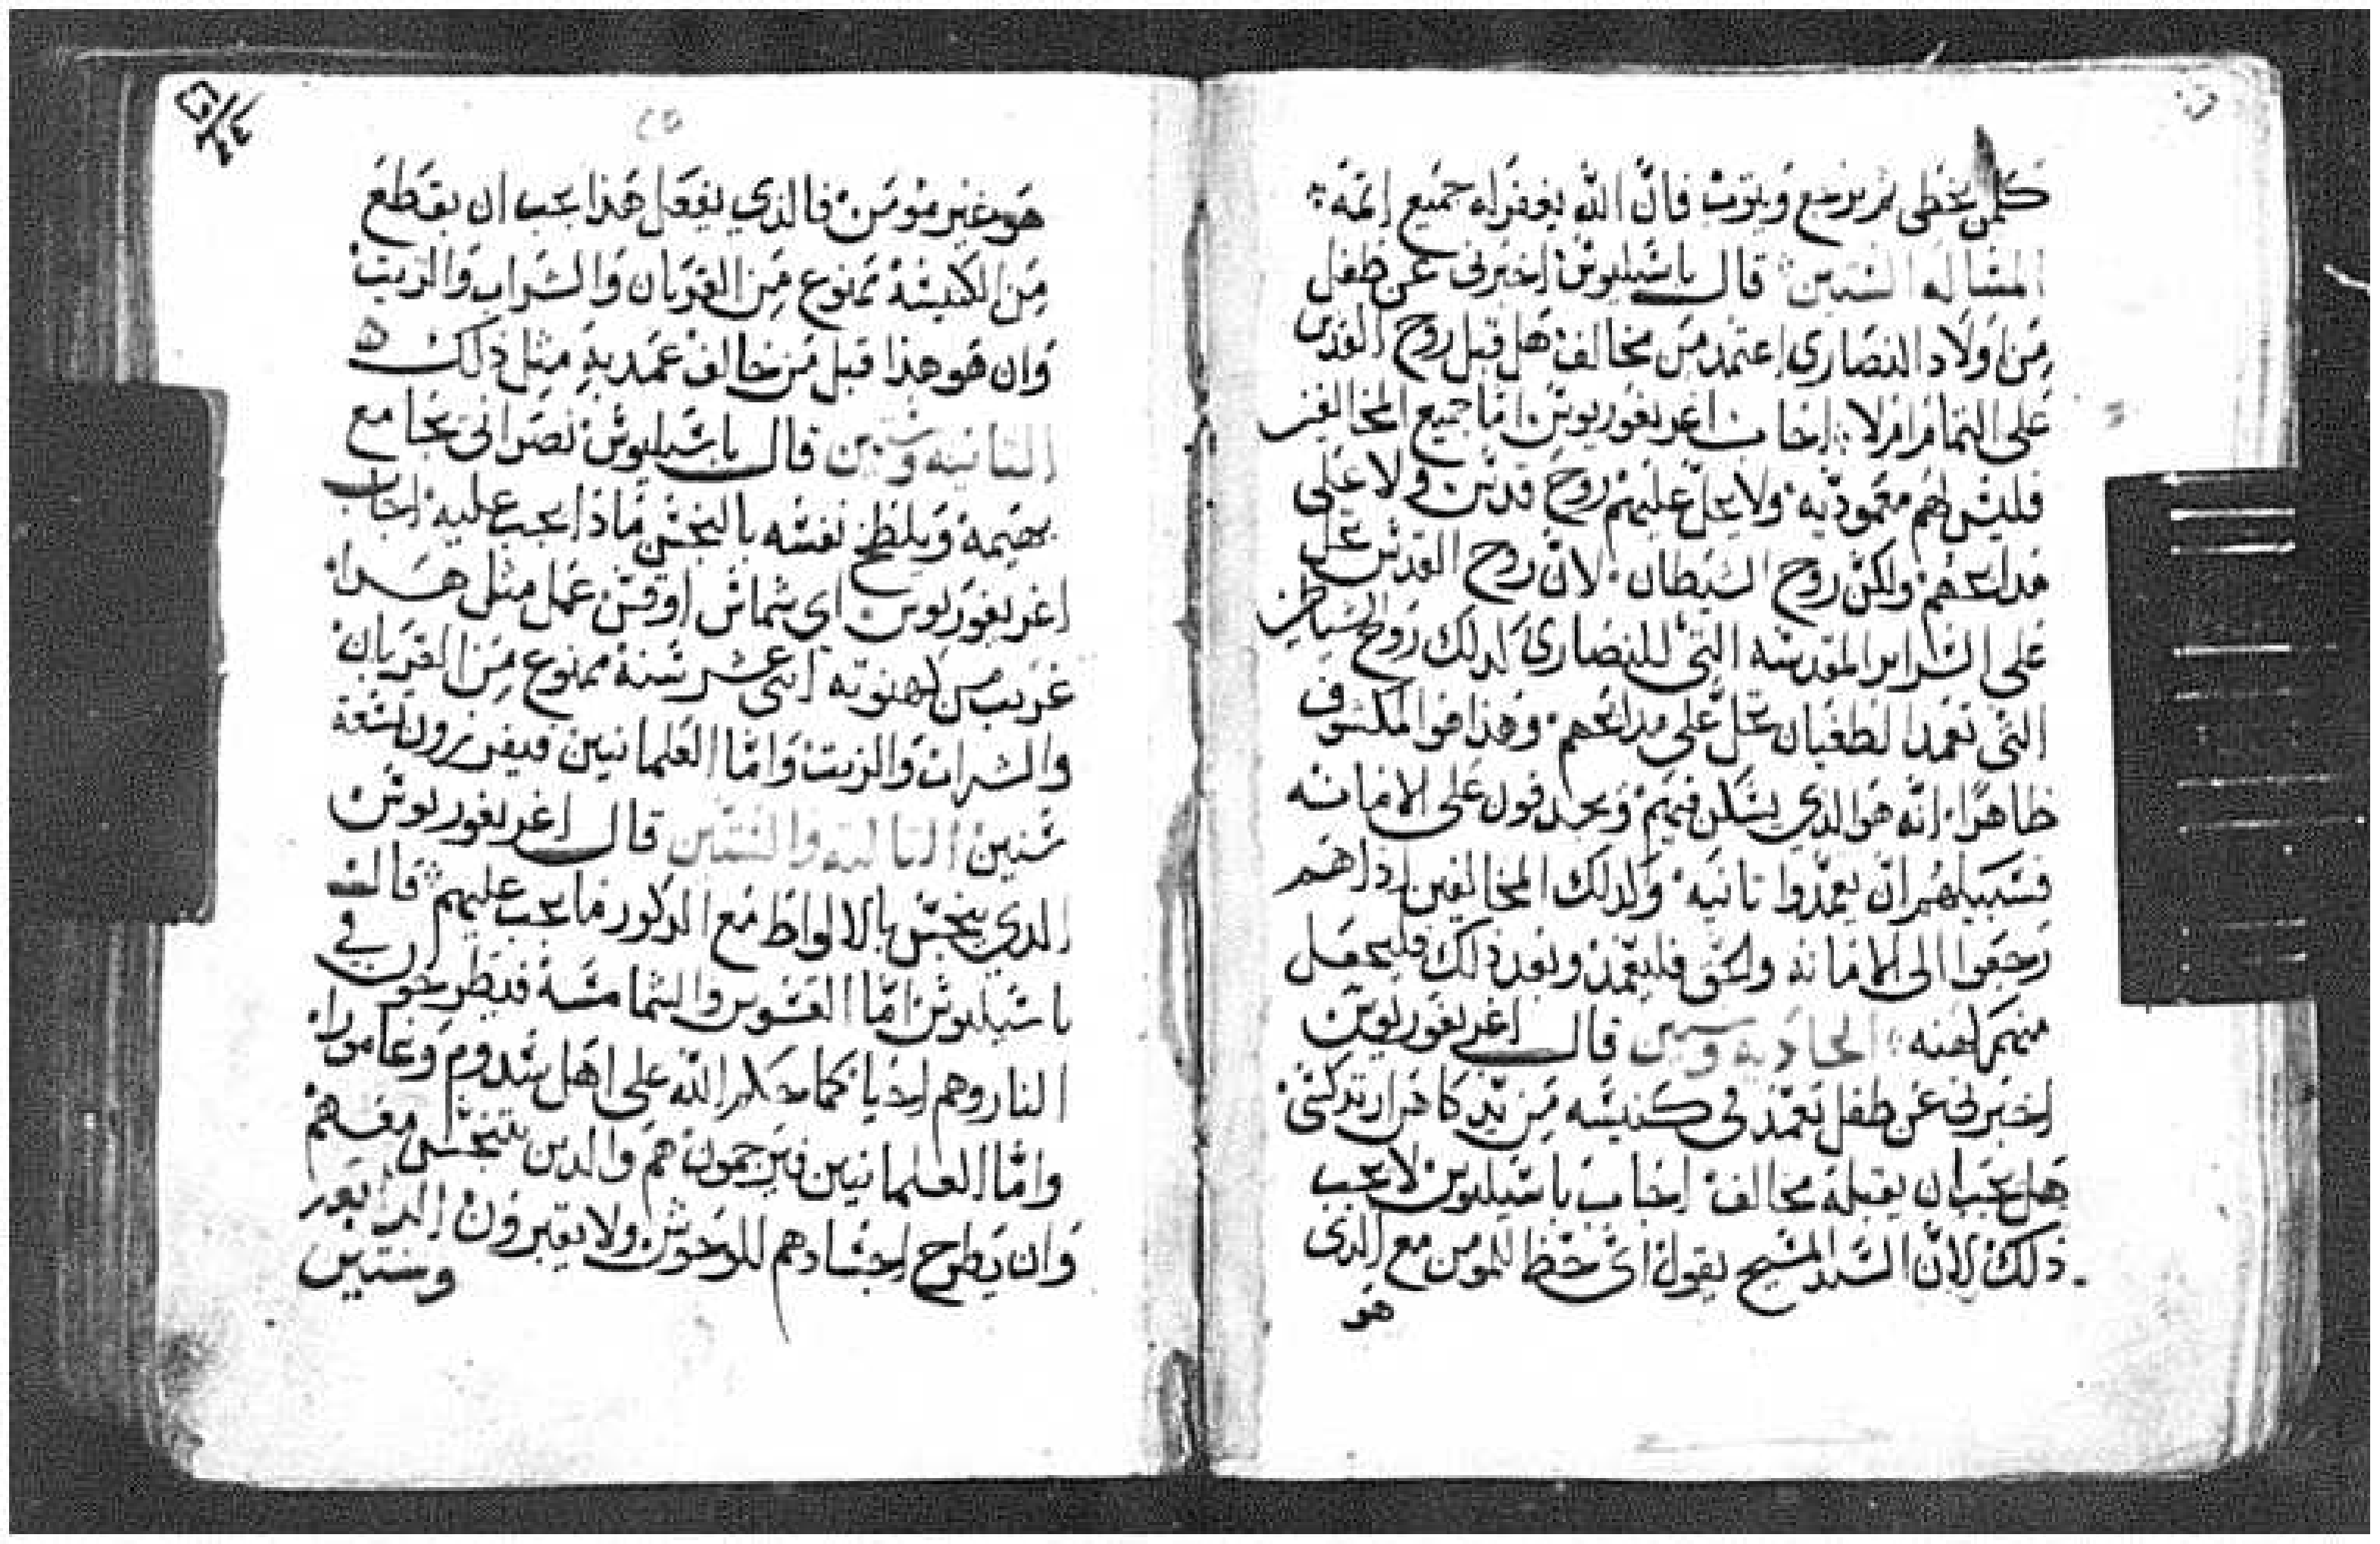 كلمن يخطى ثم يرجع ويتوب فان الله يغفر له جميع اثمه
المساله الستين قال باسيليوس اخبرني عن طفل
من اولاد النصارى اعتمد من مخالف هل قبل روح القدس
على التمام ام لا اجاب اغريغوريوس اما جميع المخالفين
فليس لهم معموديه ولا يحل عليهم روح قدس ولا على
مدابحهم ولكن روح الشيطان لان روح القدس تحل
على السراير المقدسه التي للنصارى كدلك روح الشياطين
التي تعمد الطغيان تحل على مدابحهم وهذا هو المكشوف
ظاهرا انه هو الذي يسكن فيهم ويجدفون على الامانه
فسبيلهم ان يعمدوا ثانيه وكدلك المخالفين اذا هم
رجعوا الى الامانه والحق فليعمد وبعد ذلك فليجعل
منهم كهنه الحاديه وستين قال اغريغوريوس
اخبرني عن طفل تعمد في كنيسه من يد كاهن ارتدكسي
هل يجب ان يقبله مخالف اجاب باسيليوس لا يجب
ذلك لان السيد المسيح يقول اي حظ للمومن مع الذي
هو
٢٥
هو غير مومن فالذي يفعل هذا يجب ان يقطع
من الكنيسة ممنوع من القربان والشراب والزيت
وان هو هذا قبل من خالف عمد به مثل ذلك
الثانيه وستين قال باسيليوس نصراني يجامع
بهيمة ويلطخ نفسه بالنجس ماذا يجب عليه اجاب
اغريغوريوس اي شماس او قس عمل مثل هدا
غريب من كهنوته اثنى عشر سنة ممنوع من القربان
والشراب والزيت واما العلمانيين فيفرزون تسعة
سنين الثالثه والستين قال اغريغوريوس
الدي ينجس بالالواط مع الدكور ما يجب عليهم قال
باسيليوس اما القسوس والشمامسة فيطرحون في
النار وهم احيا كما حكم الله على اهل سدوم وغامورا
واما العلمانيين فيرجمون هم والدين تنجس معهم
وان يطرح اجسادهم للوحوش ولا يقبرون الرابعه
وستين